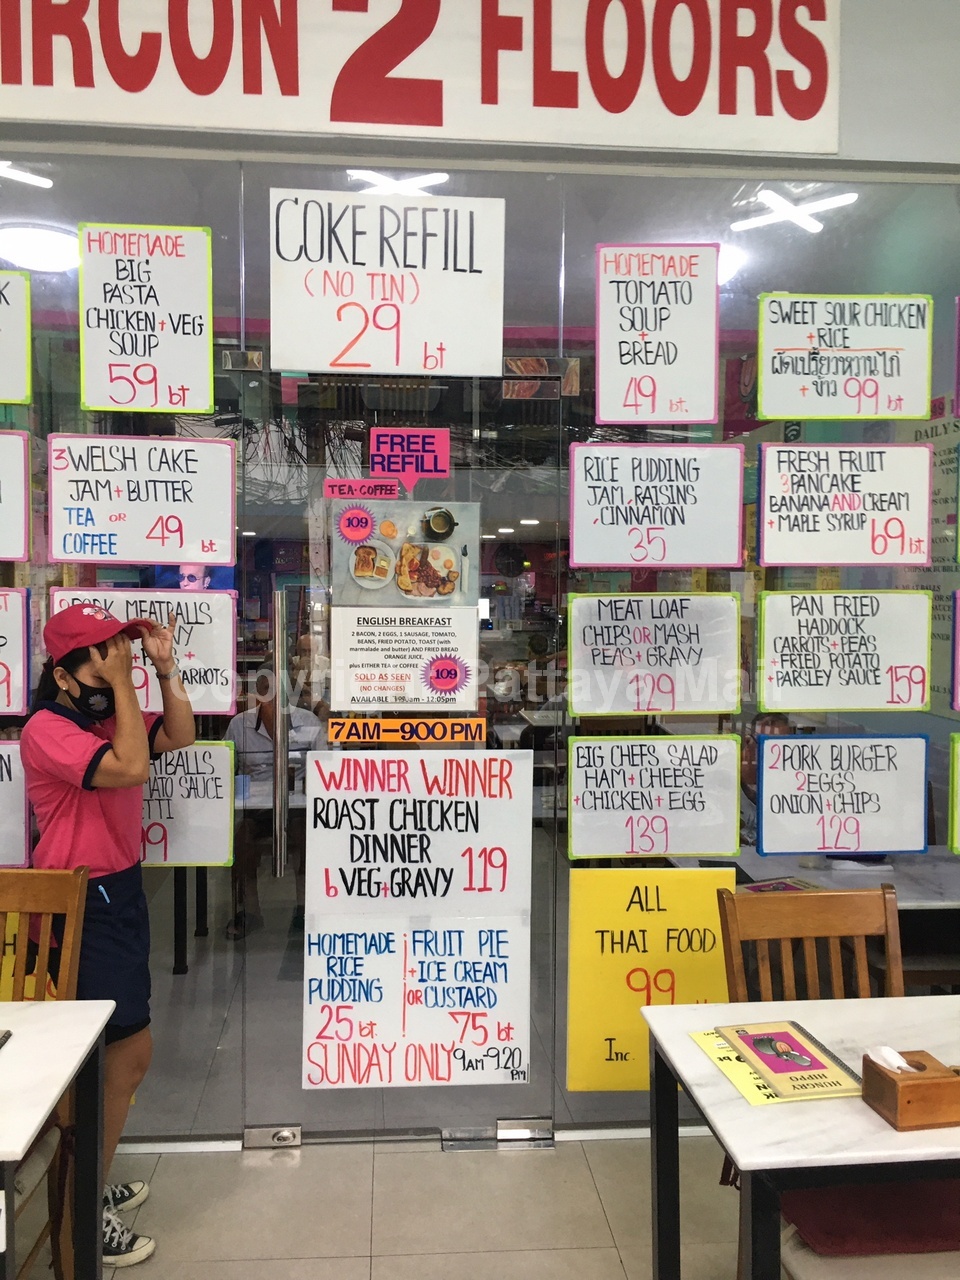 IRCON 2 FLOORS
HOMEMADE
BIG
PASTA
CHICKEN + VEG
SOUP
59 bt
COKE REFILL
(NO TIN)
29 bt
HOMEMADE
TOMATO
SOUP
+
BREAD
49 bt.
SWEET SOUR CHICKEN
+ RICE
ผัดเปรี้ยวหวานไก่
+ ข้าว 99 bt
3 WELSH CAKE
JAM + BUTTER
TEA OR
COFFEE 49 bt.
FREE
REFILL
TEA-COFFEE
109
ENGLISH BREAKFAST
2 BACON, 2 EGGS, 1 SAUSAGE, TOMATO,
BEANS, FRIED POTATO, TOAST (with
marmalade and butter) AND FRIED BREAD
ORANGE JUICE,
plus EITHER TEA or COFFEE
SOLD AS SEEN
(NO CHANGES)
109
AVAILABLE - 12:05pm
7AM-900PM
RICE PUDDING
JAM, RAISINS
,CINNAMON
35
FRESH FRUIT
3 PANCAKE
BANANA AND CREAM
+ MAPLE SYRUP 69 bt.
DAILY S
PORK MEATBALLS
CARROTS
MEAT LOAF
CHIPS OR MASH
PEAS + GRAVY
129
PAN FRIED
HADDOCK
CARROTS + PEAS
+ FRIED POTATO
+ PARSLEY SAUCE 159
Copyright Pattaya Mail
ATBALLS
ATO SAUCE
ETTI
99
WINNER WINNER
ROAST CHICKEN
DINNER
6 VEG + GRAVY 119
BIG CHEFS SALAD
HAM + CHEESE
+ CHICKEN + EGG
139
2 PORK BURGER
2 EGGS
ONION + CHIPS
129
HOMEMADE
RICE
PUDDING
25 bt.
FRUIT PIE
+ ICE CREAM
OR CUSTARD
75 bt.
SUNDAY ONLY 9AM-9.20 PM
ALL
THAI FOOD
99
Inc.
HUNGRY
HIPPO